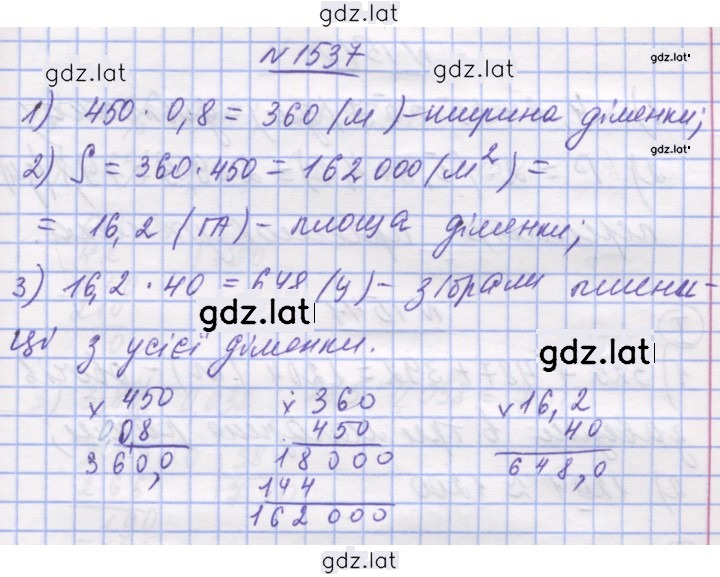 gdz.lat
N1537
gdz.lat
gdz.lat
gdz.lat
1) 450 · 0,8 = 360 (м) – ширина ділянки;
gdz.lat
2) S = 360 · 450 = 162 000 (м²) =
= 16,2 (га) – площа ділянки;
3) 16,2 · 40 = 648 (ц) – зібрали пшени-
gdz.lat
ці з усієї ділянки.
gdz.lat
× 450
0,8
360,0
× 360
450
18000
144
162000
× 16,2
40
648,0
gdz.lat